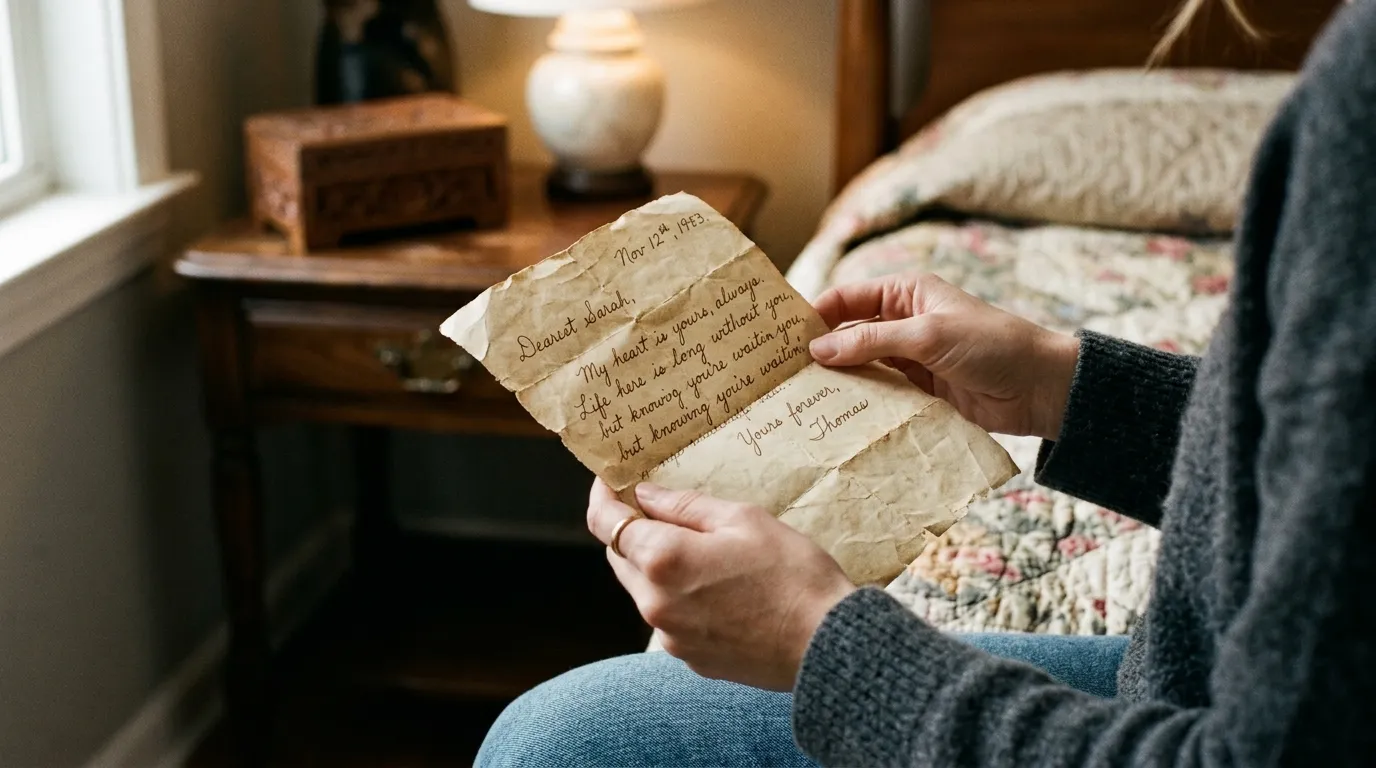 Nov 12th, 1943.
Dearect Sarah,
My heart is yours, always.
Life here is long without you,
but knowig you're waitin you,
but knowing you're waitin.
Yours forever,
Thomas